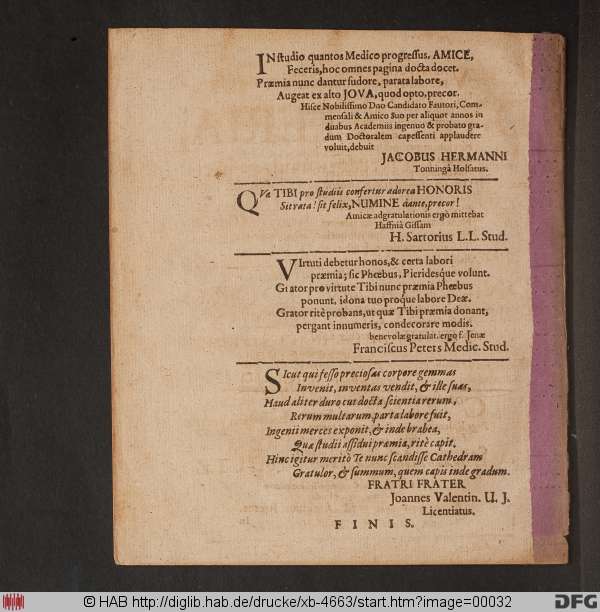 IN studio quantos Medico progressus, AMICE,
Feceris, hoc omnes pagina docta docet.
Præmia nunc dantur sudore, parata labore,
Augeat ex alto JOVA, quod opto, precor.
Hisce Nobilissimo Dno Candidato Fautori, Com-
mensali & Amico Suo per aliquot annos in
duabus Academiis ingenuo & probato gra-
dum Doctoralem capessenti applaudere
voluit, debuit
JACOBUS HERMANNI
Tonningâ Holsatus.
QVæ TIBI pro studiis confertur adorea HONORIS
Sit rata! sit felix, NUMINE dante, precor!
Amicæ adgratulationis ergò mittebat
Haffniâ Gissam
H. Sartorius L.L. Stud.
VIrtuti debetur honos, & certa labori
præmia; sic Phœbus, Pieridesque volunt.
Grator pro virtute Tibi nunc præmia Phœbus
ponunt, idona tuo proque labore Deæ.
Grator ritè probans, ut quæ Tibi præmia donant,
pergant innumeris, condecorare modis.
benevolæ gratulat. ergo f. Jenæ
Franciscus Peters Medic. Stud.
SIcut qui fesso preciosas corpore gemmas
Invenit, inventas vendit, & ille suas,
Haud aliter duro cui docta scientia rerum,
Rerum multarum, parta labore fuit,
Ingenii merces exponit, & inde brabea,
Quæ studii assidui præmia, ritè capit.
Hinc igitur meritò Te nunc scandisse Cathedram
Gratulor, & summum, quem capis inde gradum.
FRATRI FRATER
Joannes Valentin. U. J.
Licentiatus.
FINIS.
© HAB http://diglib.hab.de/drucke/xb-4663/start.htm?image=00032
DFG